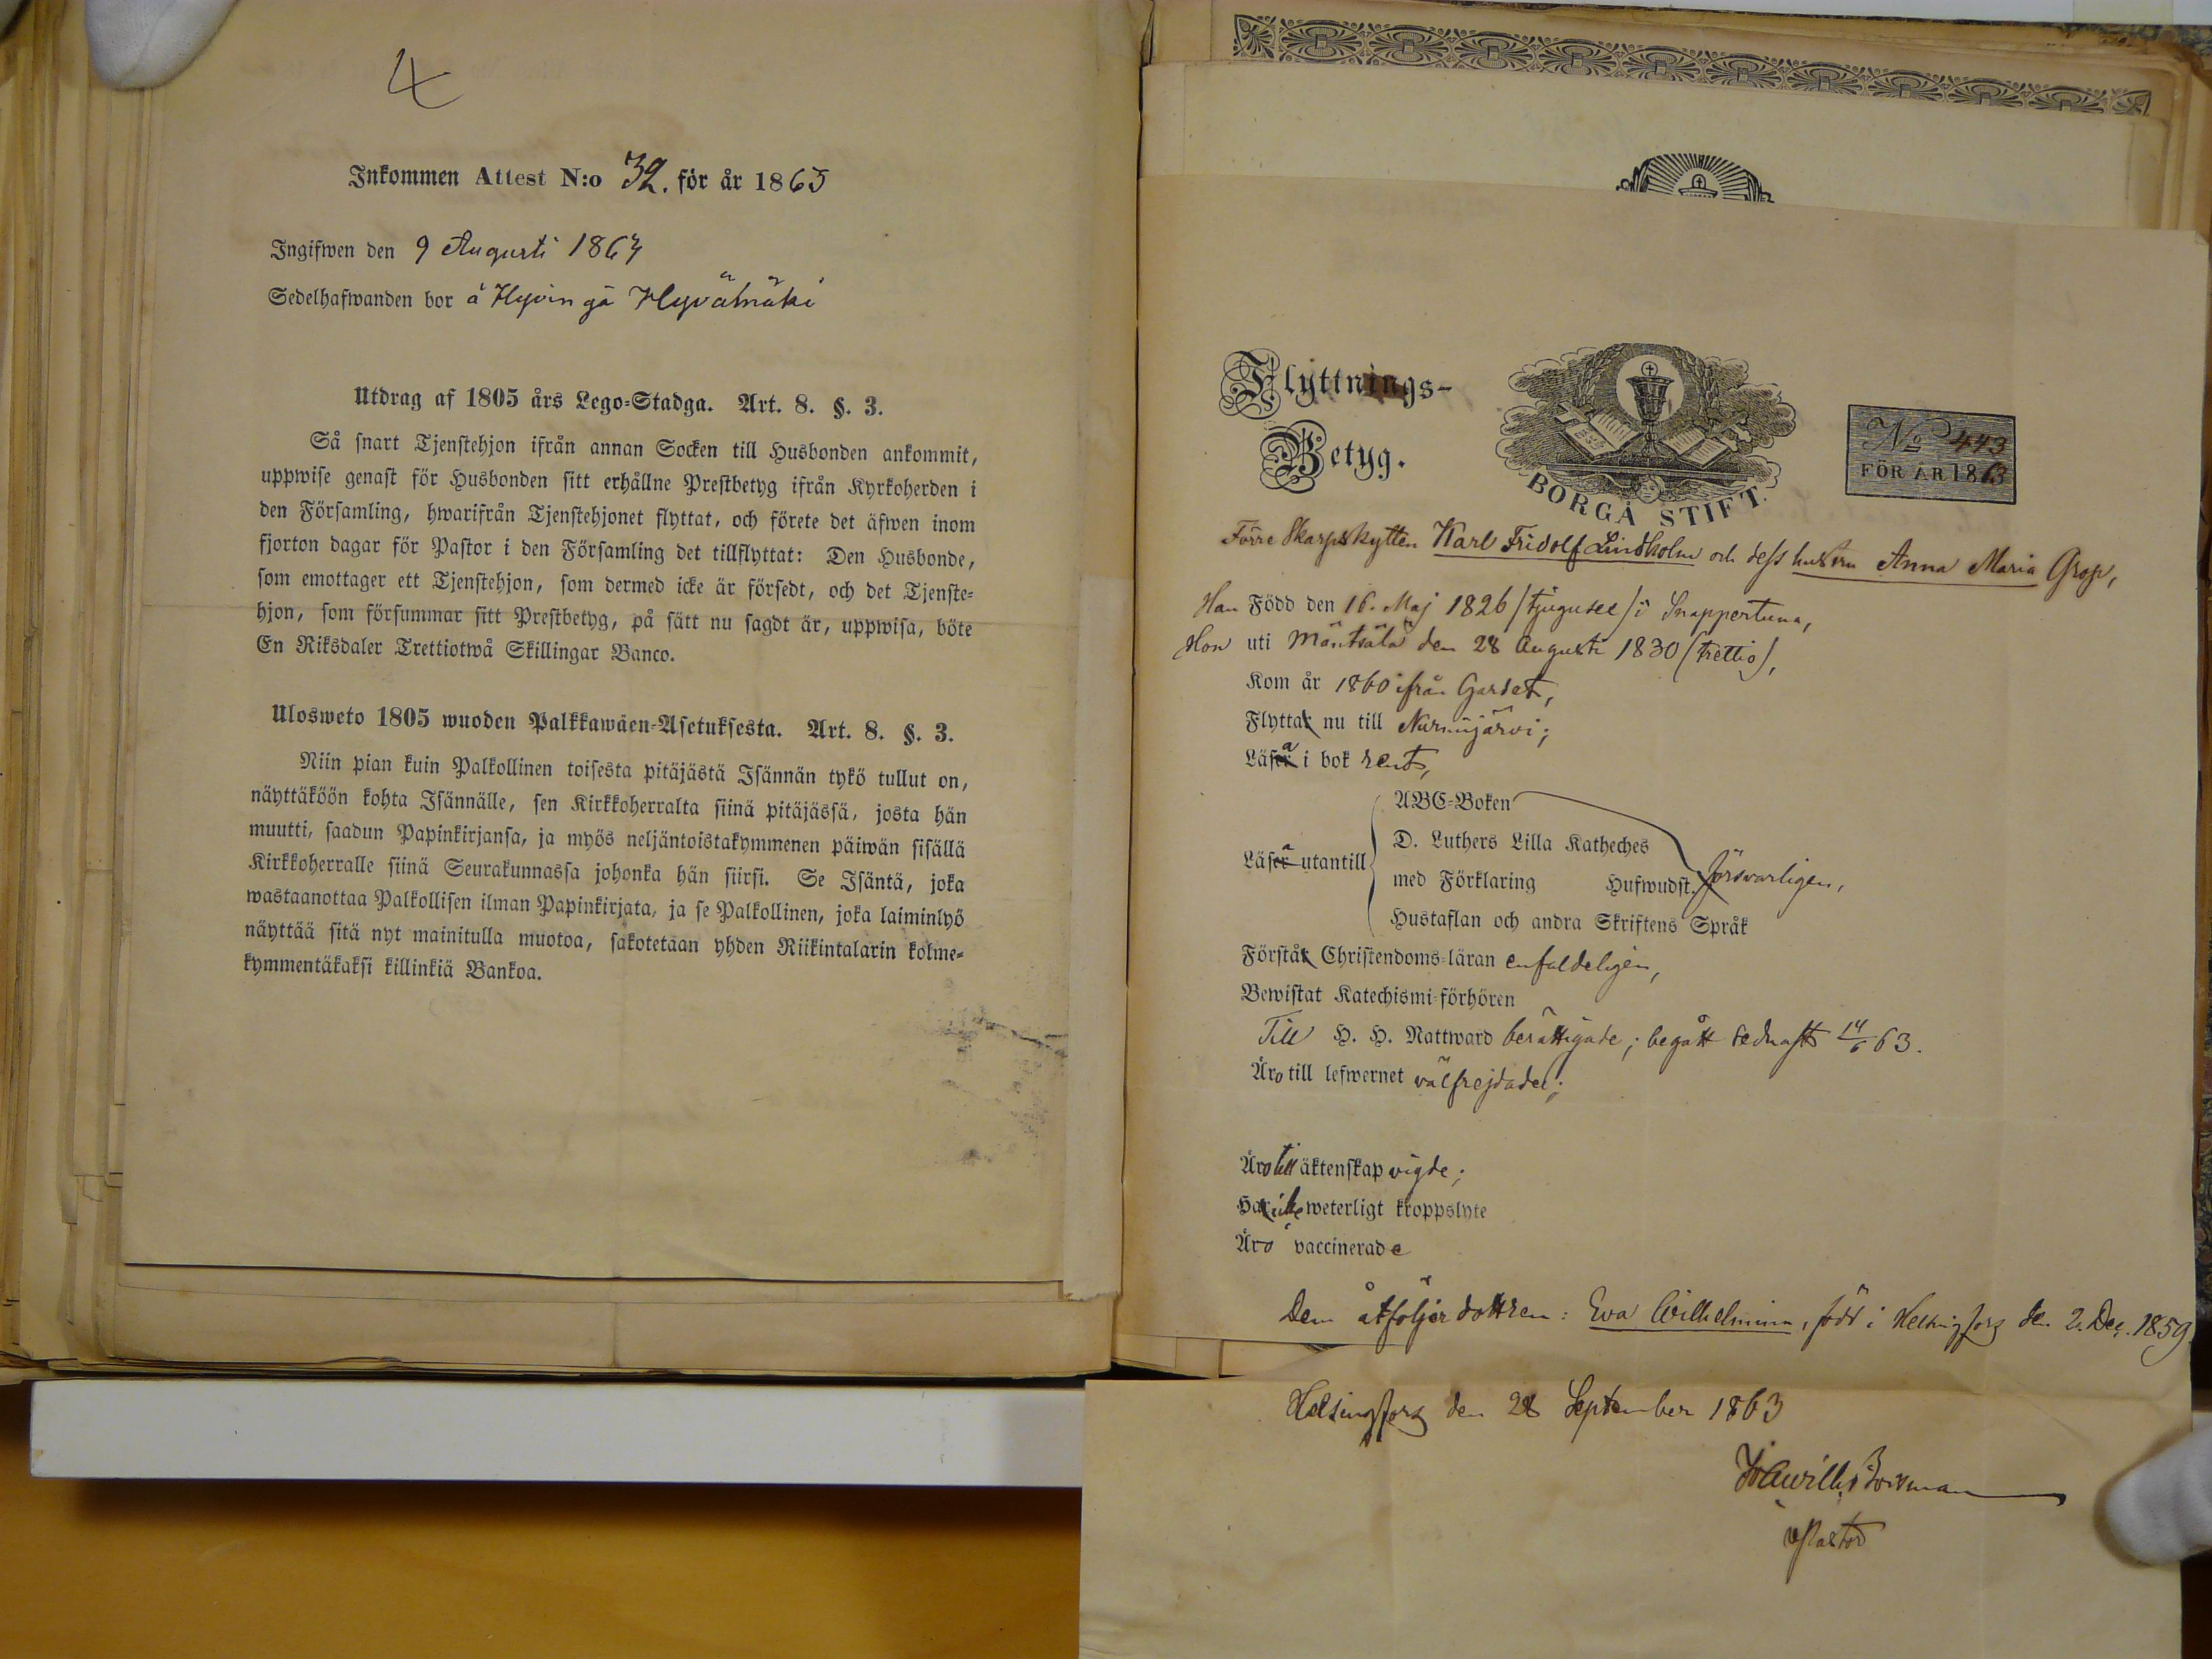 4
Inkommen Attest N:o 32. för år 1863
Ingifwen den 9 Augusti 1864
Sedelhafwanden bor å Hyvingä Hyvämäki
Utdrag af 1805 års Lego-Stadga. Art. 8. §. 3.
Så snart Tjenstehjon ifrån annan Socken till Husbonden ankommit,
uppwise genast för Husbonden sitt erhållne Prestbetyg ifrån Kyrkoherden i
den Församling, hwarifrån Tjenstehjonet flyttat, och förete det äfwen inom
fjorton dagar för Pastor i den Församling det tillflyttat: Den Husbonde,
som emottager ett Tjenstehjon, som dermed icke är försedt, och det Tjenste-
hjon, som försummar sitt Prestbetyg, på sätt nu sagdt är, uppwisa, böte
En Riksdaler Trettiotwå Skillingar Banco.
Ulosweto 1805 wuoden Palkkawäen-Asetuksesta. Art. 8. §. 3.
Niin pian kuin Palkollinen toisesta pitäjästä Isännän tykö tullut on,
näyttäköön kohta Isännälle, sen Kirkkoherralta siinä pitäjässä, josta hän
muutti, saadun Papinkirjansa, ja myös neljäntoistakymmenen päiwän sisällä
Kirkkoherralle siinä Seurakunnassa johonka hän siirsi. Se Isäntä, joka
wastaanottaa Palkollisen ilman Papinkirjata, ja se Palkollinen, joka laiminlyö
näyttää sitä nyt mainitulla muotoa, sakotetaan yhden Riikintalarin kolme-
kymmentäkaksi killinkiä Bankoa.
Flyttnings-
Betyg.
BORGÅ STIFT.
No 443
FÖR ÅR 1863
Förre Skarpskytten Karl Fridolf Lindholm och dess hustru Anna Maria Grop,
Han Född den 16. Maj 1826 /tjugusex/ i Snappertuna,
Hon uti Mäntsälä den 28 Augusti 1830 (trettio),
Kom år 1860 ifrån Gardet,
Flytta nu till Nurmijärvi;
Läsa i bok rent,
ABC-Boken
D. Luthers Lilla Katheches
Läsa utantill
med Förklaring Hufwudst. försvarligen,
Hustaflan och andra Skriftens Språk
Förstå Christendoms-läran enfaldeligen,
Bewistat Katechismi-förhören
Till H. H. Nattward berättigade; begått sednast 14/6 63.
Äro till lefwernet välfrejdade;
Äro till äktenskap vigde;
Ha icke weterligt kroppslyte
Äro vaccinerade
Dem åtföljer dottren: Eva Wilhelmina, född i Helsingfors den 2. Dec. 1859.
Helsingfors den 28 September 1863
v Pastor